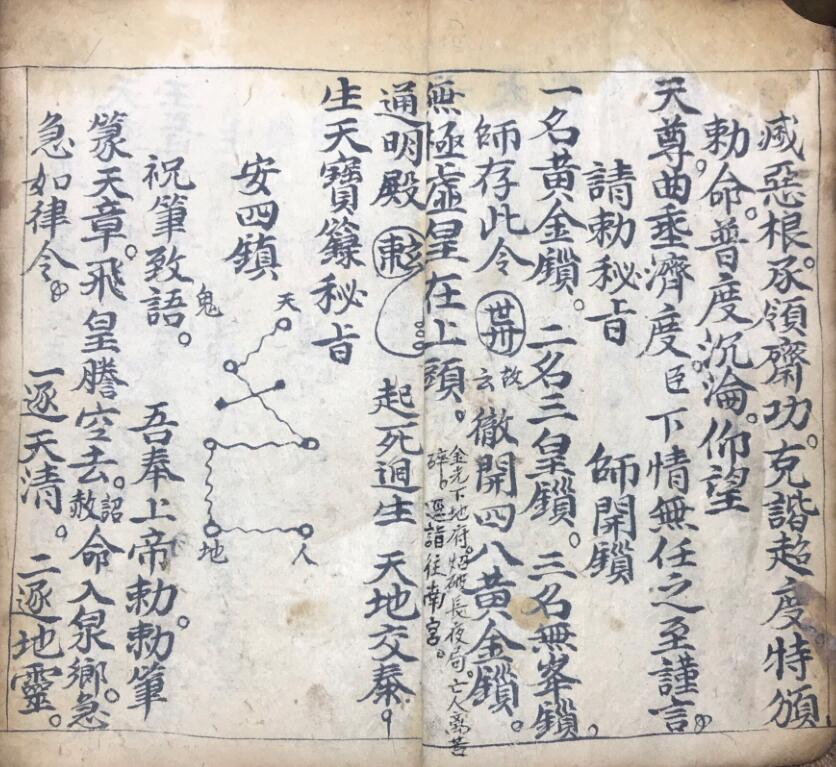 滅惡根。承領齋功。克諧超度特頒
勅命。普度沉淪。仰望
天尊。曲垂濟度。臣下情無任之至謹言。
請勅秘旨 師開鎖
一名黃金鎖。二名三皇鎖。三名無峯鎖。
師存此令 故云 徹開四八黃金鎖。
金光下地府。照破長夜局。亡人離苦
碎。愿詣往南宮。
無極虛皇在上頭。
通明殿 起死迴生 天地交泰。
生天寶籙秘旨
安四鎮
鬼
天
地
人
祝筆致語。吾奉上帝勅。勅筆
篆天章。飛皇騰空去。詔赦命入泉鄉。急
急如律令。一逐天清。二逐地靈。